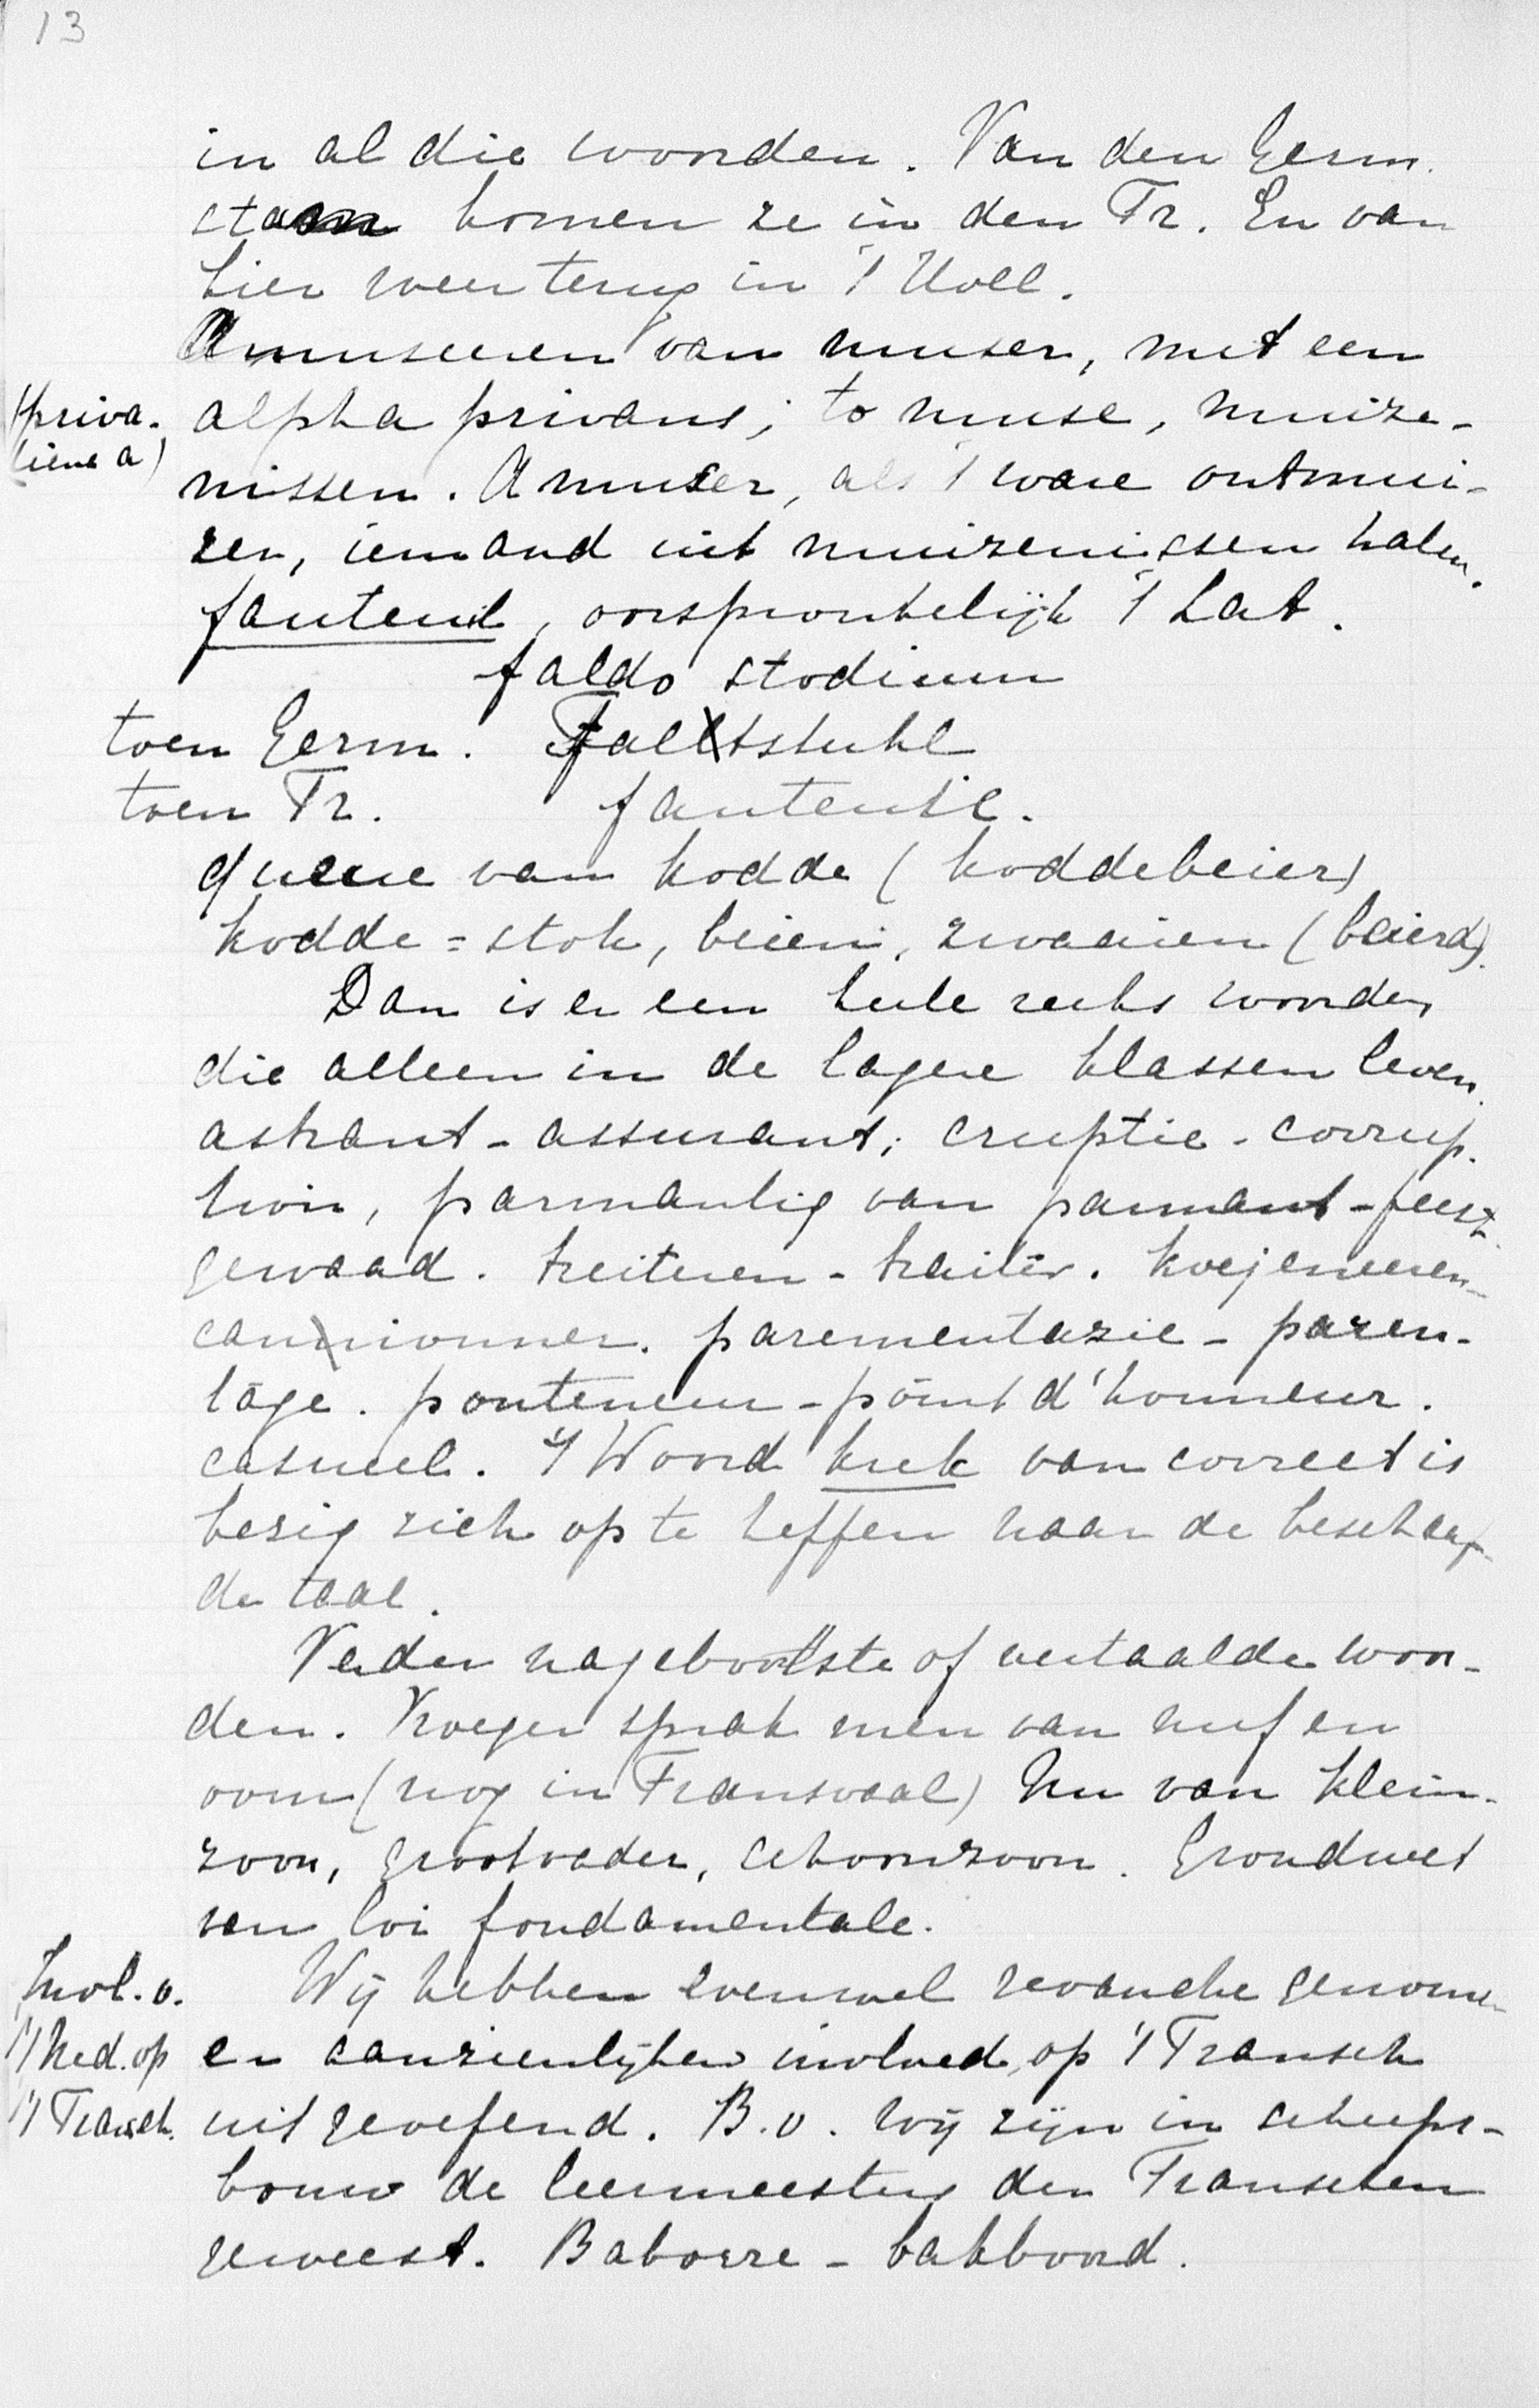 13
in al die woorden. Van den Germ.
stam komen ze in den Fr. En van
hier weer terug in 't Holl.
Amuseeren van muser, met een
(priva-
tieve a)
alpha privans; to muse, muize-
nissen. Amuser, als 't ware ontmui-
zen, iemand uit muizenissen halen.
fauteuil, oorspronkelijk 't Lat.
faldo stodium
toen Germ. Faltstuhl
toen Fr. fauteuil.
queue van kodde (koddebeier)
kodde = stok, beien, zwaaien (beierd).
Dan is er een heele reeks woorden
die alleen in de lagere klassen leven.
astrant - assurant; cruptie - corrup-
tion, parmantig van parmant - feest-
gewaad. treiteren - traiter. koejeneeren -
canionner. parementazie - paren-
tage. ponteneur - point d'honneur.
casueel. 't Woord krek van correct is
bezig zich op te heffen naar de beschaaf-
de taal.
Verder nagebootste of vertaalde woor-
den. Vroeger sprak men van neef en
oom (nog in Transvaal) Nu van klein-
zoon, grootvader, schoonzoon. Grondwet
van loi fondamentale.
Invl. v.
't Ned. op
't Fransch.
Wij hebben evenwel revanche genomen
en aanzienlijken invloed op 't Fransch
uitgeoefend. B.v. wij zijn in scheeps-
bouw de leermeesters der Franschen
geweest. Baborre - bakboord.